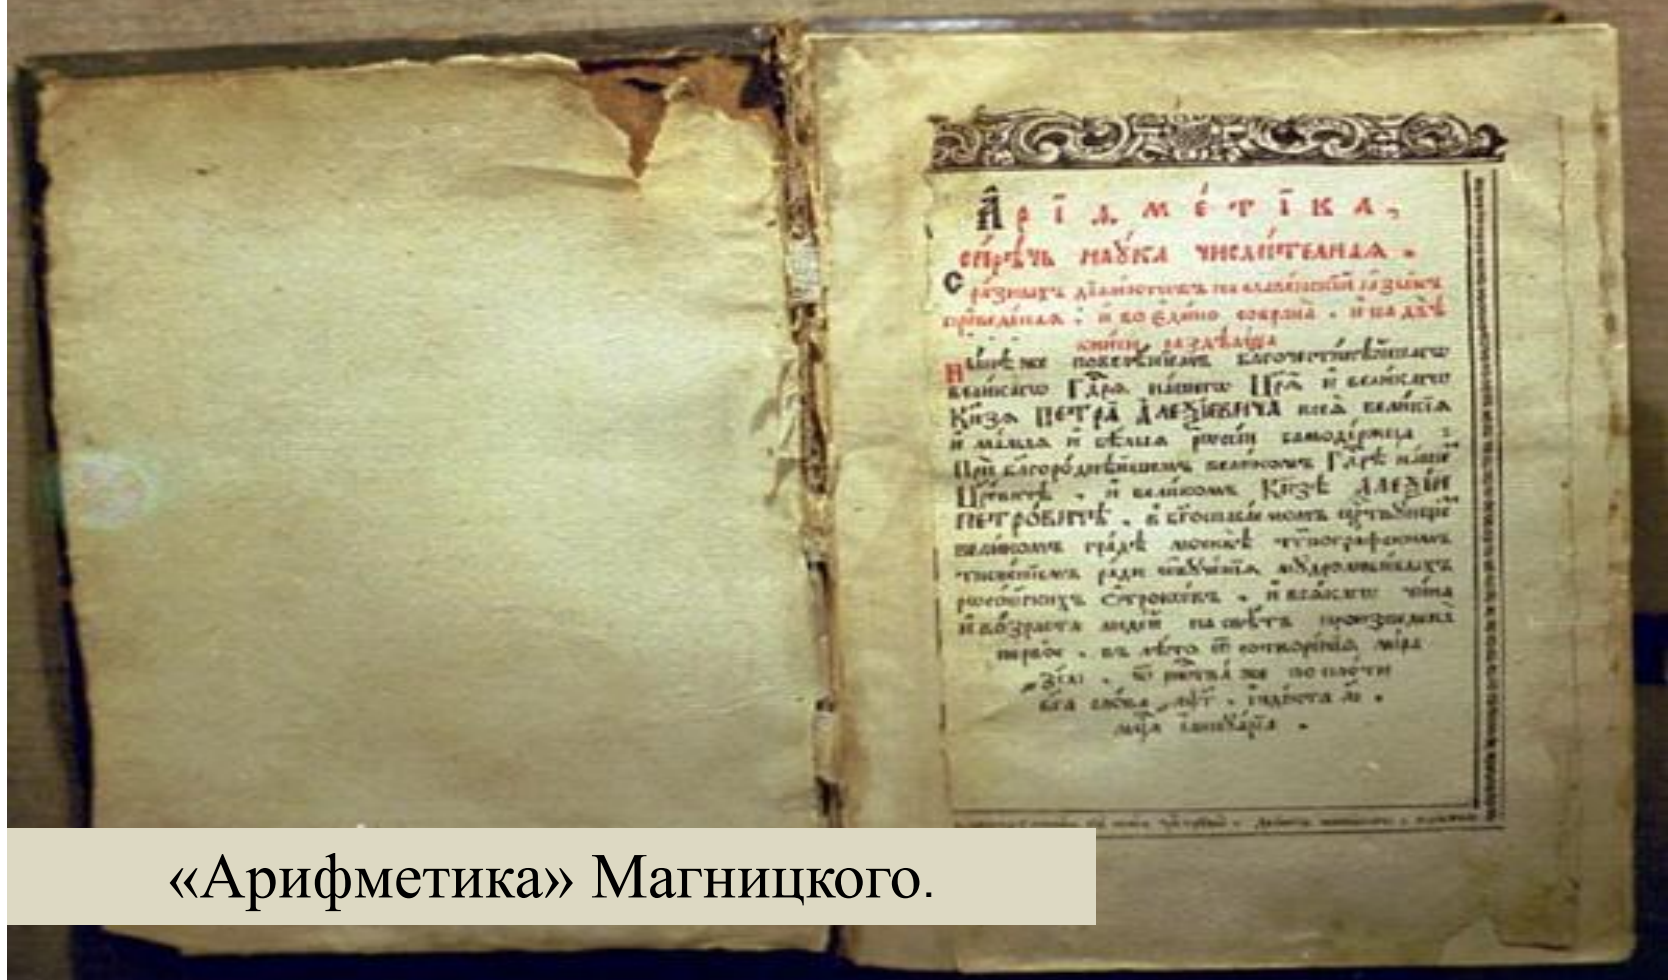 Арїѳме́тїка,
си́рѣчь наꙋ́ка числи́телная.
С ра́зныхъ дїале́ктовъ на славе́нскїй ѧзы́къ
преведе́ная, и во еди́но собрана̀, и на двѣ̀
кни́ги раздѣле́на
Ны́нѣ же повелѣ́нїемъ благочести́вѣйшагѡ
вели́кагѡ Гдⷭ҇рѧ на́шегѡ Цр҃ѧ̀ и вели́кагѡ
Кн҃зѧ ПЕТРА̀ АЛЕѮІ́ЕВИЧА всеѧ̀ вели́кїѧ
и ма́лыѧ и бѣ́лыѧ рѡссі́и самоде́ржца :
При бл҃горо́днѣйшемъ вели́комъ Гдⷭ҇рѣ на́шемъ
Цр҃е́вичѣ, и вели́комъ Кн҃зѣ АЛЕѮІ́И
ПЕТРО́ВИЧѢ, в бг҃оспаса́емомъ црⷭ҇твꙋющемъ
вели́комъ гра́дѣ москвѣ̀ типографскимъ
тисне́нїемъ ра́ди ѡбꙋче́нїѧ мꙋдролюби́выхъ
рѡссі́йскихъ ѻ́трокѡвъ, и всѧ́кагѡ чи́на
и во́зраста люде́й на свѣ́тъ произведена̀
пе́рвое, въ лѣ́то ѿ сотворе́нїѧ мі́ра
҂зс҃аі, ѿ ржⷭ҇тва̀ же по пло́ти
бг҃а сло́ва ҂аѱг҃, їнді́кта а҃і,
мцⷭ҇а їаннꙋа́рїа.
«Арифметика» Магницкого.